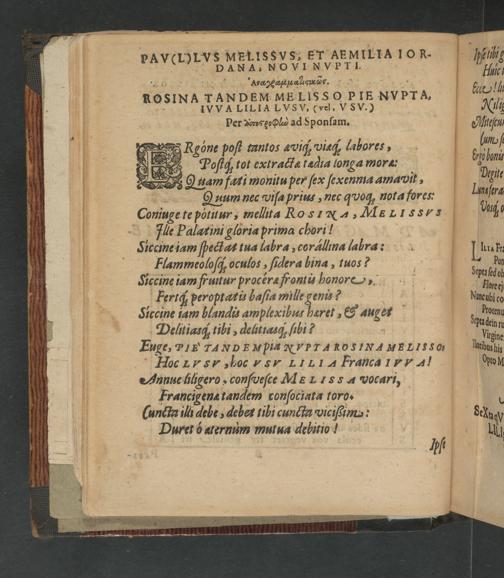 PAV(L)LVS MELISSVS, ET AEMILIA IOR-
DANA, NOVI NVPTI.
Ἀναγραμματικῶς.
ROSINA TANDEM MELISSO PIE NVPTA,
IVVA LILIA LVSV, (vel, VSV.)
Per ad Sponsam.
ERgóne post tantos æviq́, viæq́, labores,
Postq́, tot extractæ tædia longa moræ:
Quam fati monitu per sex sexennia amavit,
Quum nec visa prius, nec quoq́, nota fores:
Coniuge te potitur, mellita ROSINA, MELISSVS
Ille Palatini gloria prima chori!
Siccine iam spectat tua labra, corállina labra:
Flammeolosq́, oculos, sidera bina, tuos?
Siccine iam fruitur proceræ frontis honore,
Fertq́, peroptatis basia mille genis?
Siccine iam blandis amplexibus hæret, & auget
Delitiasq́, tibi, delitiasq́, sibi?
Euge, PIE TANDEM pia NVPTA ROSINA MELISSO,
Hoc LVSV, hoc VSV LILIA Franca IVVA!
Annue liligero, consvesce MELISSA vocari,
Francigenæ tandem consociata toro.
Cuncta illi debe, debet tibi cuncta vicißim:
Duret ô æternùm mutua debitio!
Ipse
Ipse tibi g
Huic
Ecce
Ergò bonis
Degite
Luna
Vosq́,
LILIA Fra
Septa sed ob
Nunc ubi
Septa dein
Virgine
Opto M